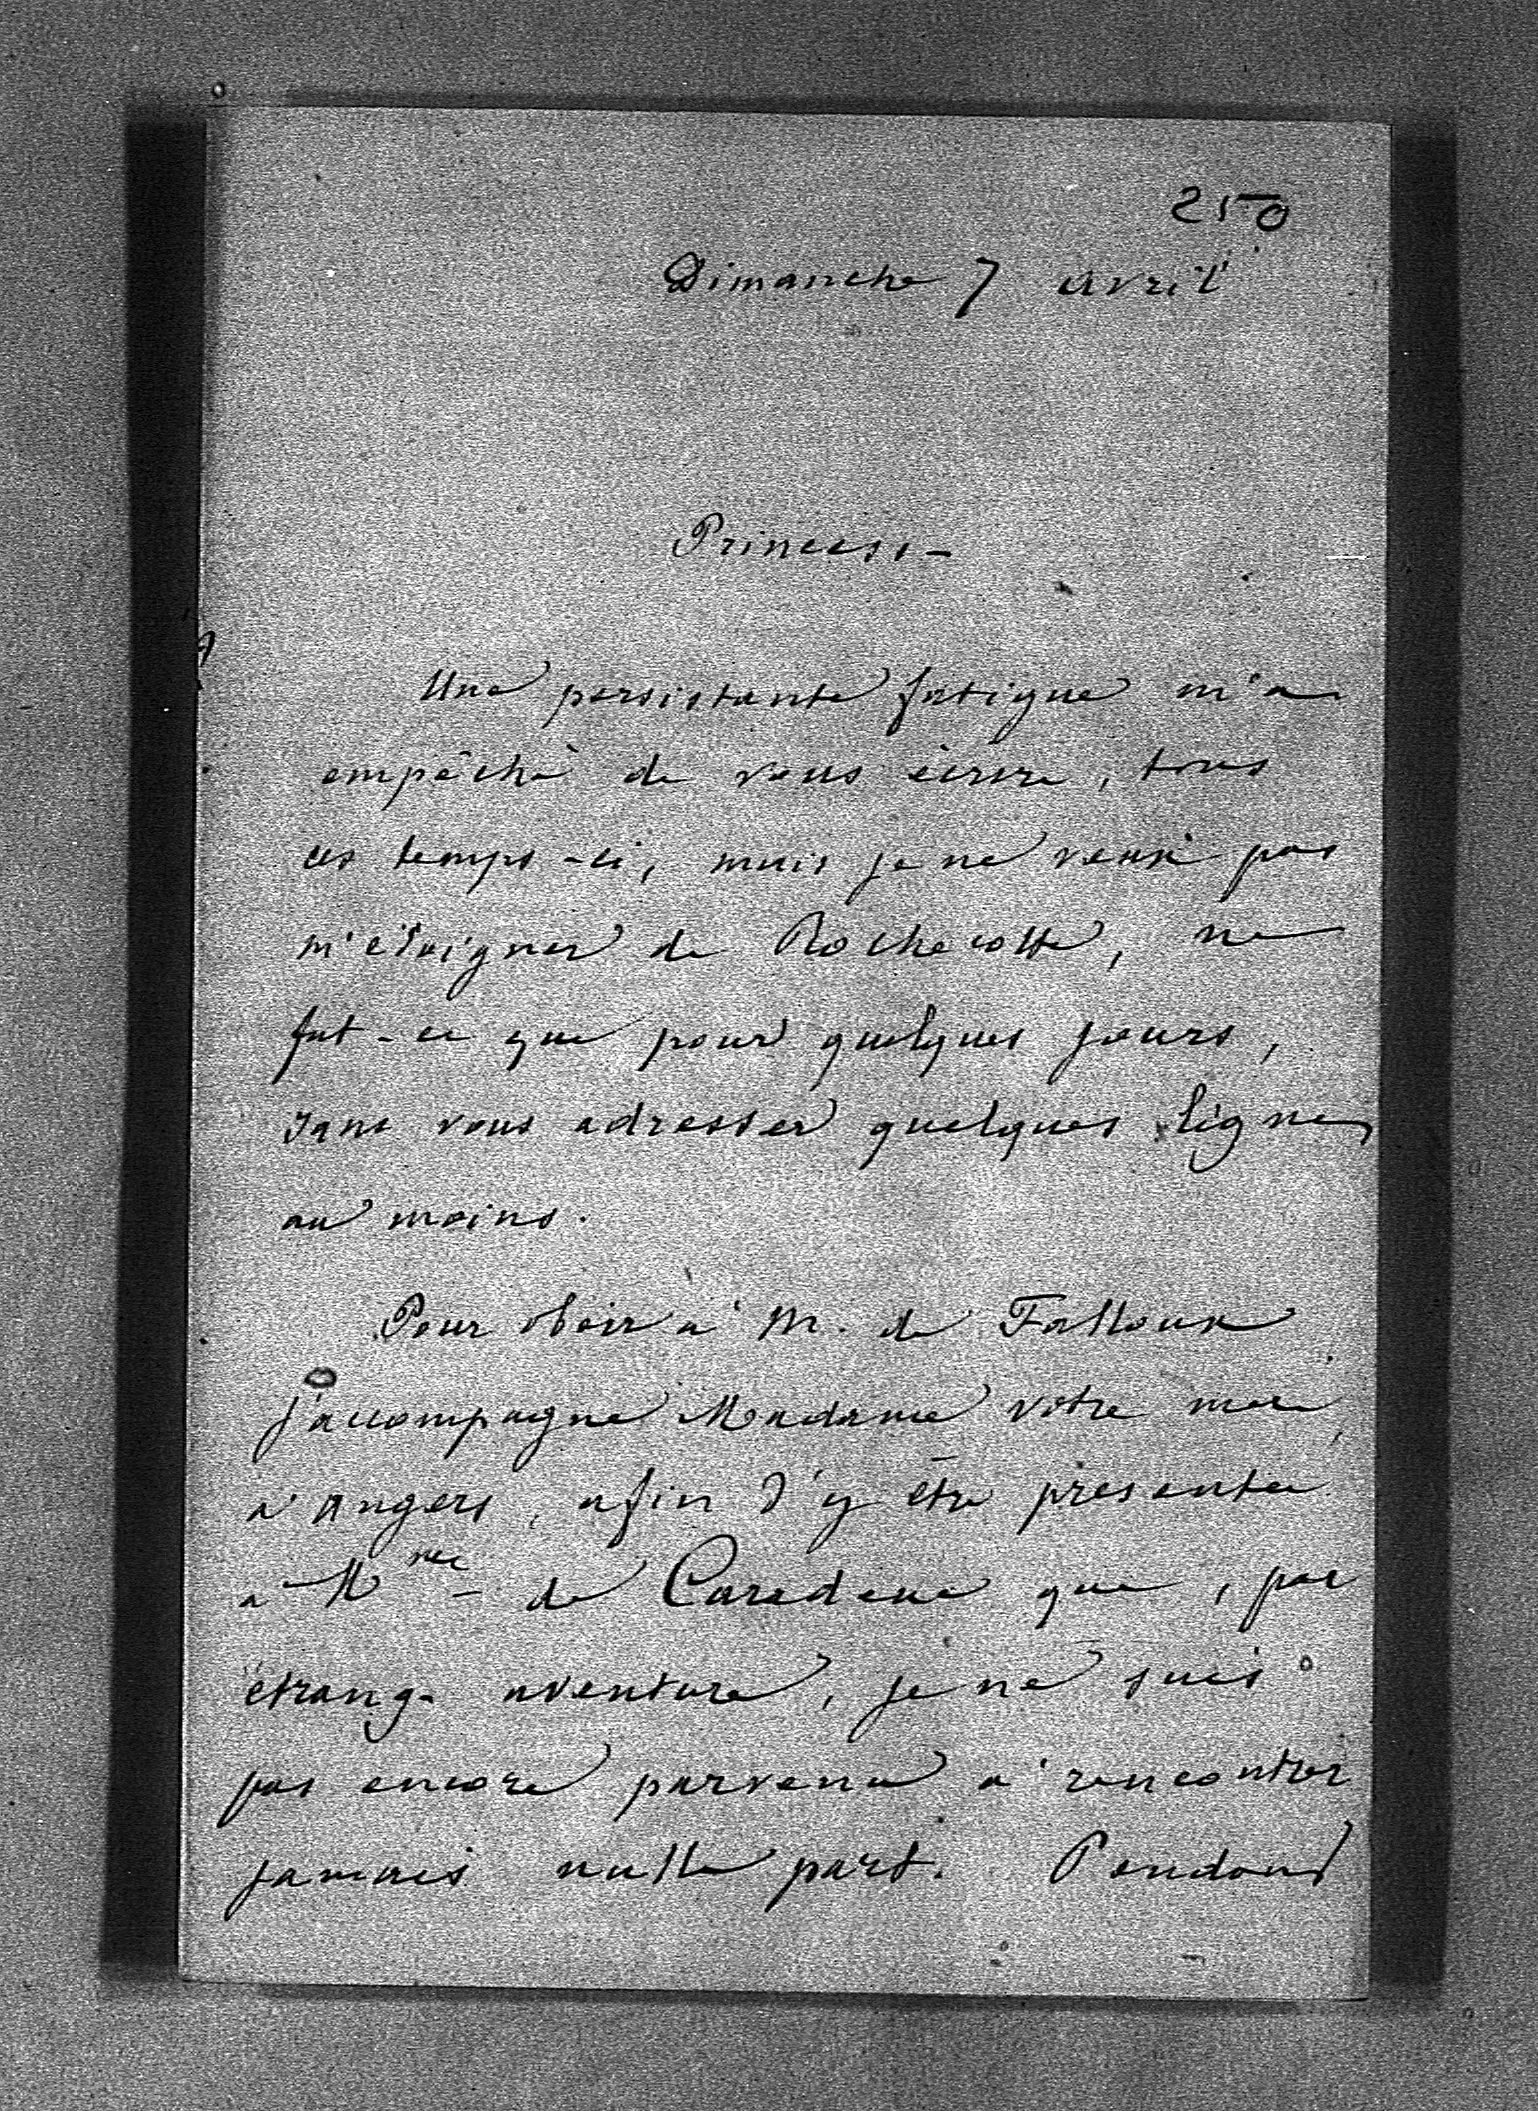 250
Dimanche 7 avril
Princesse
Une persistante fatigue m'a
empêché de vous écrire, tous
ces temps-ci, mais je ne veux pas
m'éloigner de Rochecotte, ne
fut-ce que pour quelques jours,
sans vous adresser quelques lignes
au moins.
Pour obéir à M. de Falloux
j'accompagne Madame votre mère,
à Angers, afin d'y être présentée
à Mme de Caradeuc que, par
étrange aventure, je ne suis
pas encore parvenu à rencontrer
jamais nulle part. Pendant